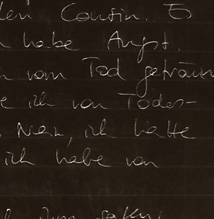 Mein Cousin. Es
habe Angst.
vom Tod geträum
e ich von Todes-
Nein, ich hatte
ich habe von